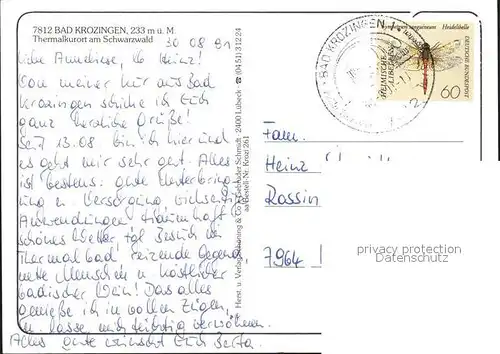 7812 BAD KROZINGEN, 233 m ü. M.
Thermalkurort am Schwarzwald
30 08 91
Liebe Anneliese, lb Heinz!
Von meiner Kur aus Bad
Krozingen schicke ich Euch
ganz herzliche Grüße!
Seit 13.08 bin ich hier und
es geht mir sehr gut. Alles
ist bestens: gute Unterbring-
ung u. Versorgung,
Anwendungen traumhaft
schönes Wetter, tgl. Besuch im
Thermalbad, reizende Gegend,
nette Menschen u. köstlicher
badischer Wein! Das alles
genieße ich in vollen Zügen,
u. lasse mich richtig verwöhnen.
Alles gute wünscht Euch Berta.
Herst. u. Verlag Schöning & Co + Gebrüder Schmidt · 2400 Lübeck · ☎ (04 51) 3 12 24
aa Bestell-Nr. Krozi 261
BAD KROZINGEN 1
HEIMISCHE
LIBELLEN
Heidelibelle
DEUTSCHE BUNDESPOST
60
Fam.
Heinz
Rossin
7964
privacy protection
Datenschutz